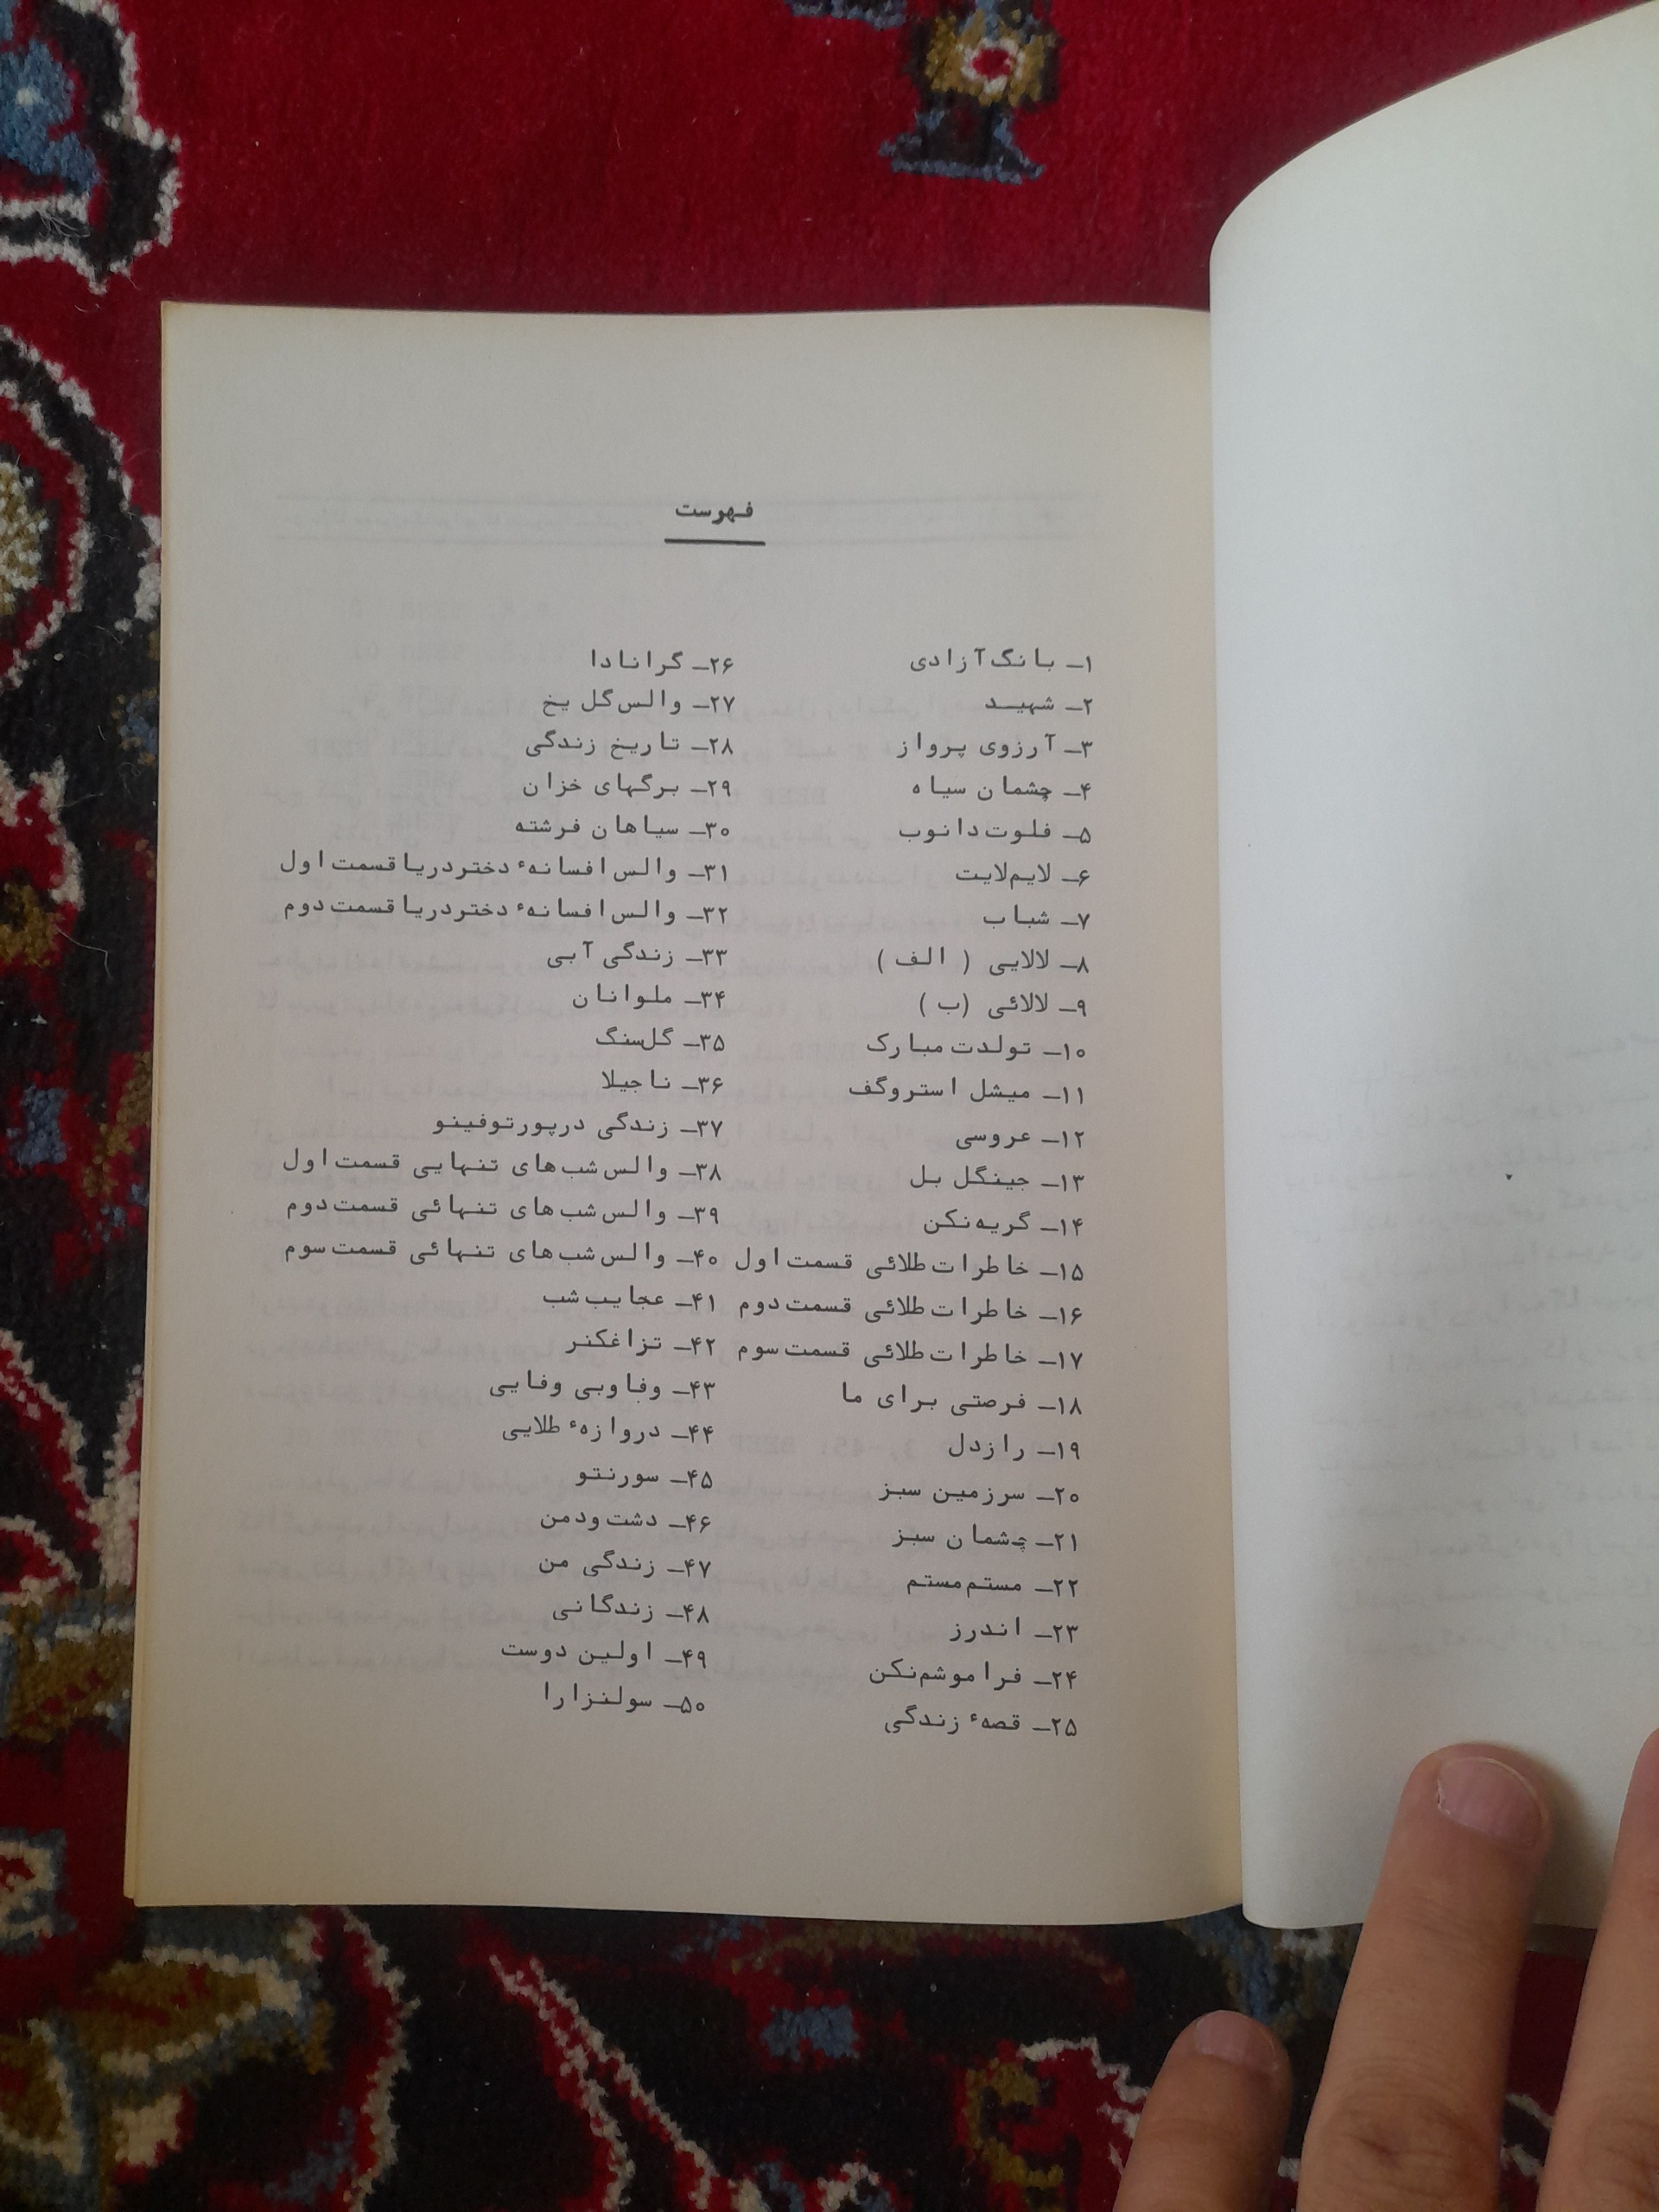 فهرست
۱ـ بانگ آزادی
۲ـ شهید
۳ـ آرزوی پرواز
۴ـ چشمان سیاه
۵ـ فلوت دانوب
۶ـ لایم‌لایت
۷ـ شباب
۸ـ لالایی ( الف )
۹ـ لالائی (ب )
۱۰ـ تولدت مبارک
۱۱ـ میشل استروگف
۱۲ـ عروسی
۱۳ـ جینگل بل
۱۴ـ گریه نکن
۱۵ـ خاطرات طلائی قسمت اول
۱۶ـ خاطرات طلائی قسمت دوم
۱۷ـ خاطرات طلائی قسمت سوم
۱۸ـ فرصتی برای ما
۱۹ـ رازدل
۲۰ـ سرزمین سبز
۲۱ـ چشمان سبز
۲۲ـ مستم مستم
۲۳ـ اندرز
۲۴ـ فراموشم نکن
۲۵ـ قصهٔ زندگی
۲۶ـ گرانادا
۲۷ـ والس گل یخ
۲۸ـ تاریخ زندگی
۲۹ـ برگهای خزان
۳۰ـ سیاهان فرشته
۳۱ـ والس افسانهٔ دختر دریا قسمت اول
۳۲ـ والس افسانهٔ دختر دریا قسمت دوم
۳۳ـ زندگی آبی
۳۴ـ ملوانان
۳۵ـ گل‌سنگ
۳۶ـ ناجیلا
۳۷ـ زندگی در پورتوفینو
۳۸ـ والس شب‌های تنهایی قسمت اول
۳۹ـ والس شب‌های تنهائی قسمت دوم
۴۰ـ والس شب‌های تنهائی قسمت سوم
۴۱ـ عجایب شب
۴۲ـ تزاغکنر
۴۳ـ وفا و بی وفایی
۴۴ـ دروازهٔ طلایی
۴۵ـ سورنتو
۴۶ـ دشت و دمن
۴۷ـ زندگی من
۴۸ـ زندگانی
۴۹ـ اولین دوست
۵۰ـ سولنزارا